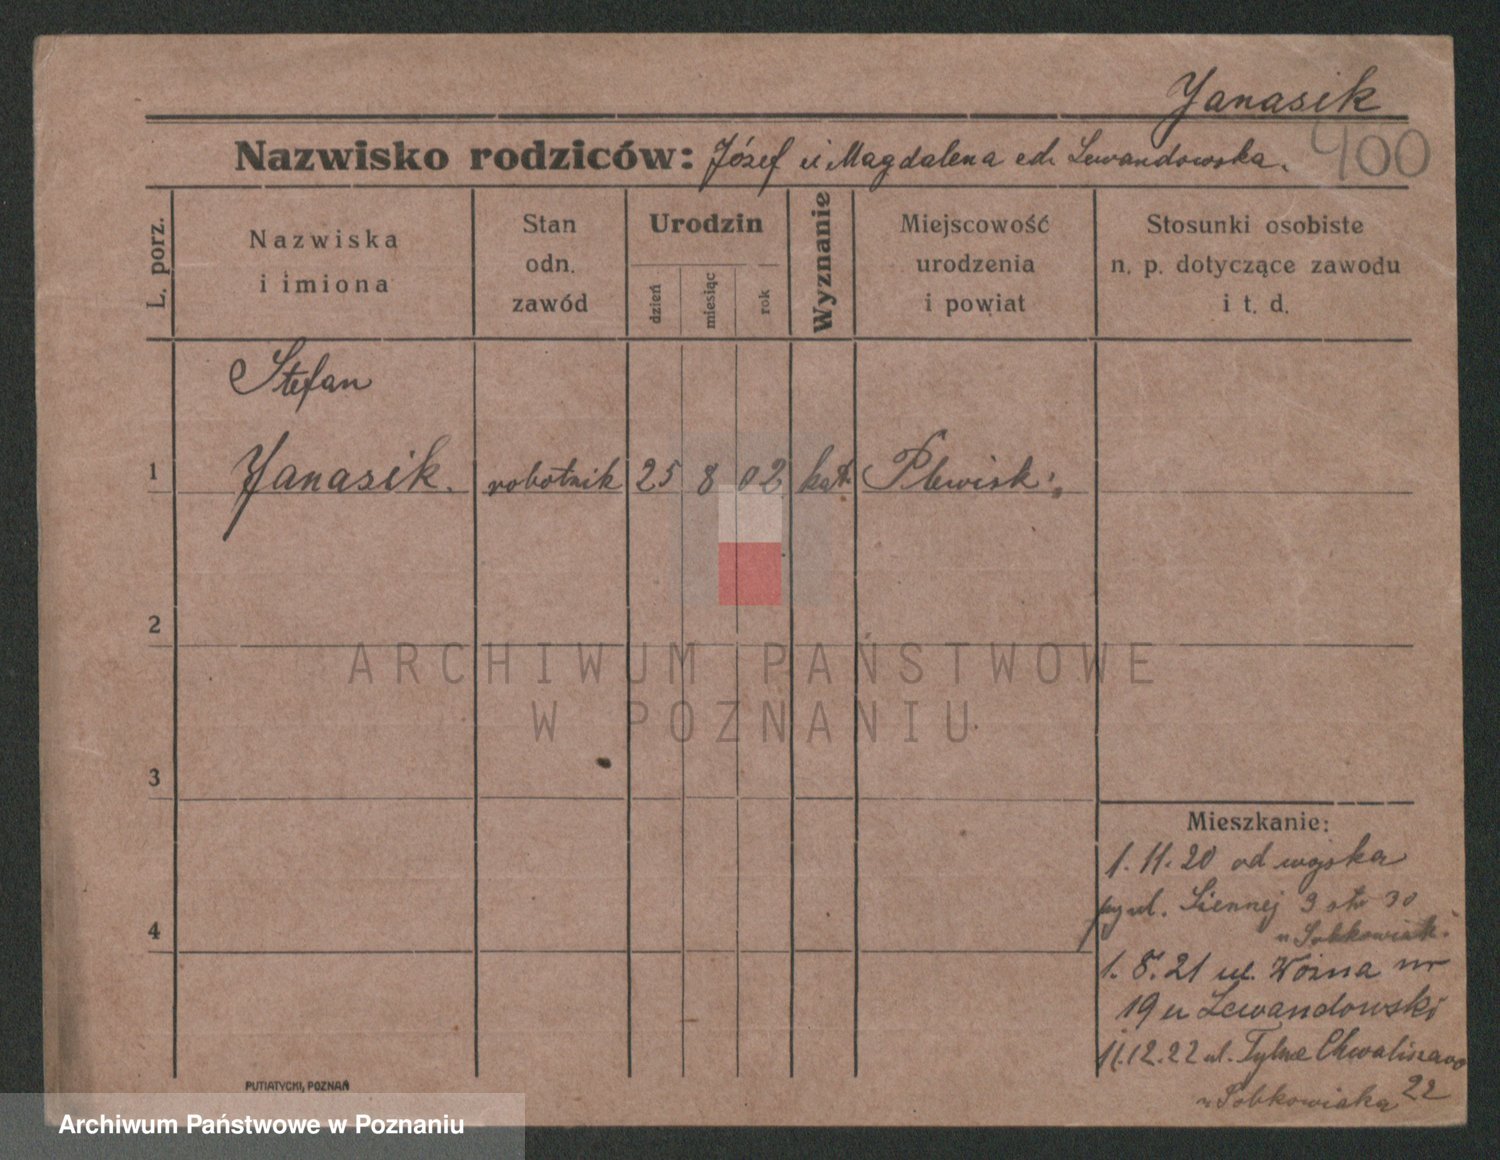 Janasik
400
Nazwisko rodziców: Józef i Magdalena Lewandowska.
L. porz.
Nazwiska
i imiona
Stan
odn.
zawód
Urodzin
dzień
miesiąc
rok
Wyznanie
Miejscowość
urodzenia
i powiat
Stosunki osobiste
n. p. dotyczące zawodu
i t. d.
Stefan
1 Janasik. robotnik 25 8 02 kat. Plewisk
2
3
4
ARCHIWUM PAŃSTWOWE
W POZNANIU
Mieszkanie:
1.11.20 od wojska
ul. Siennej 9 30
u Sobkowiak.
1.8.21 ul. Woźna nr
19 u Lewandowski
11.12.22 ul. Tylne Chwaliszewo
22
u Sobkowiaka
PUTIATYCKI, POZNAŃ
Archiwum Państwowe w Poznaniu